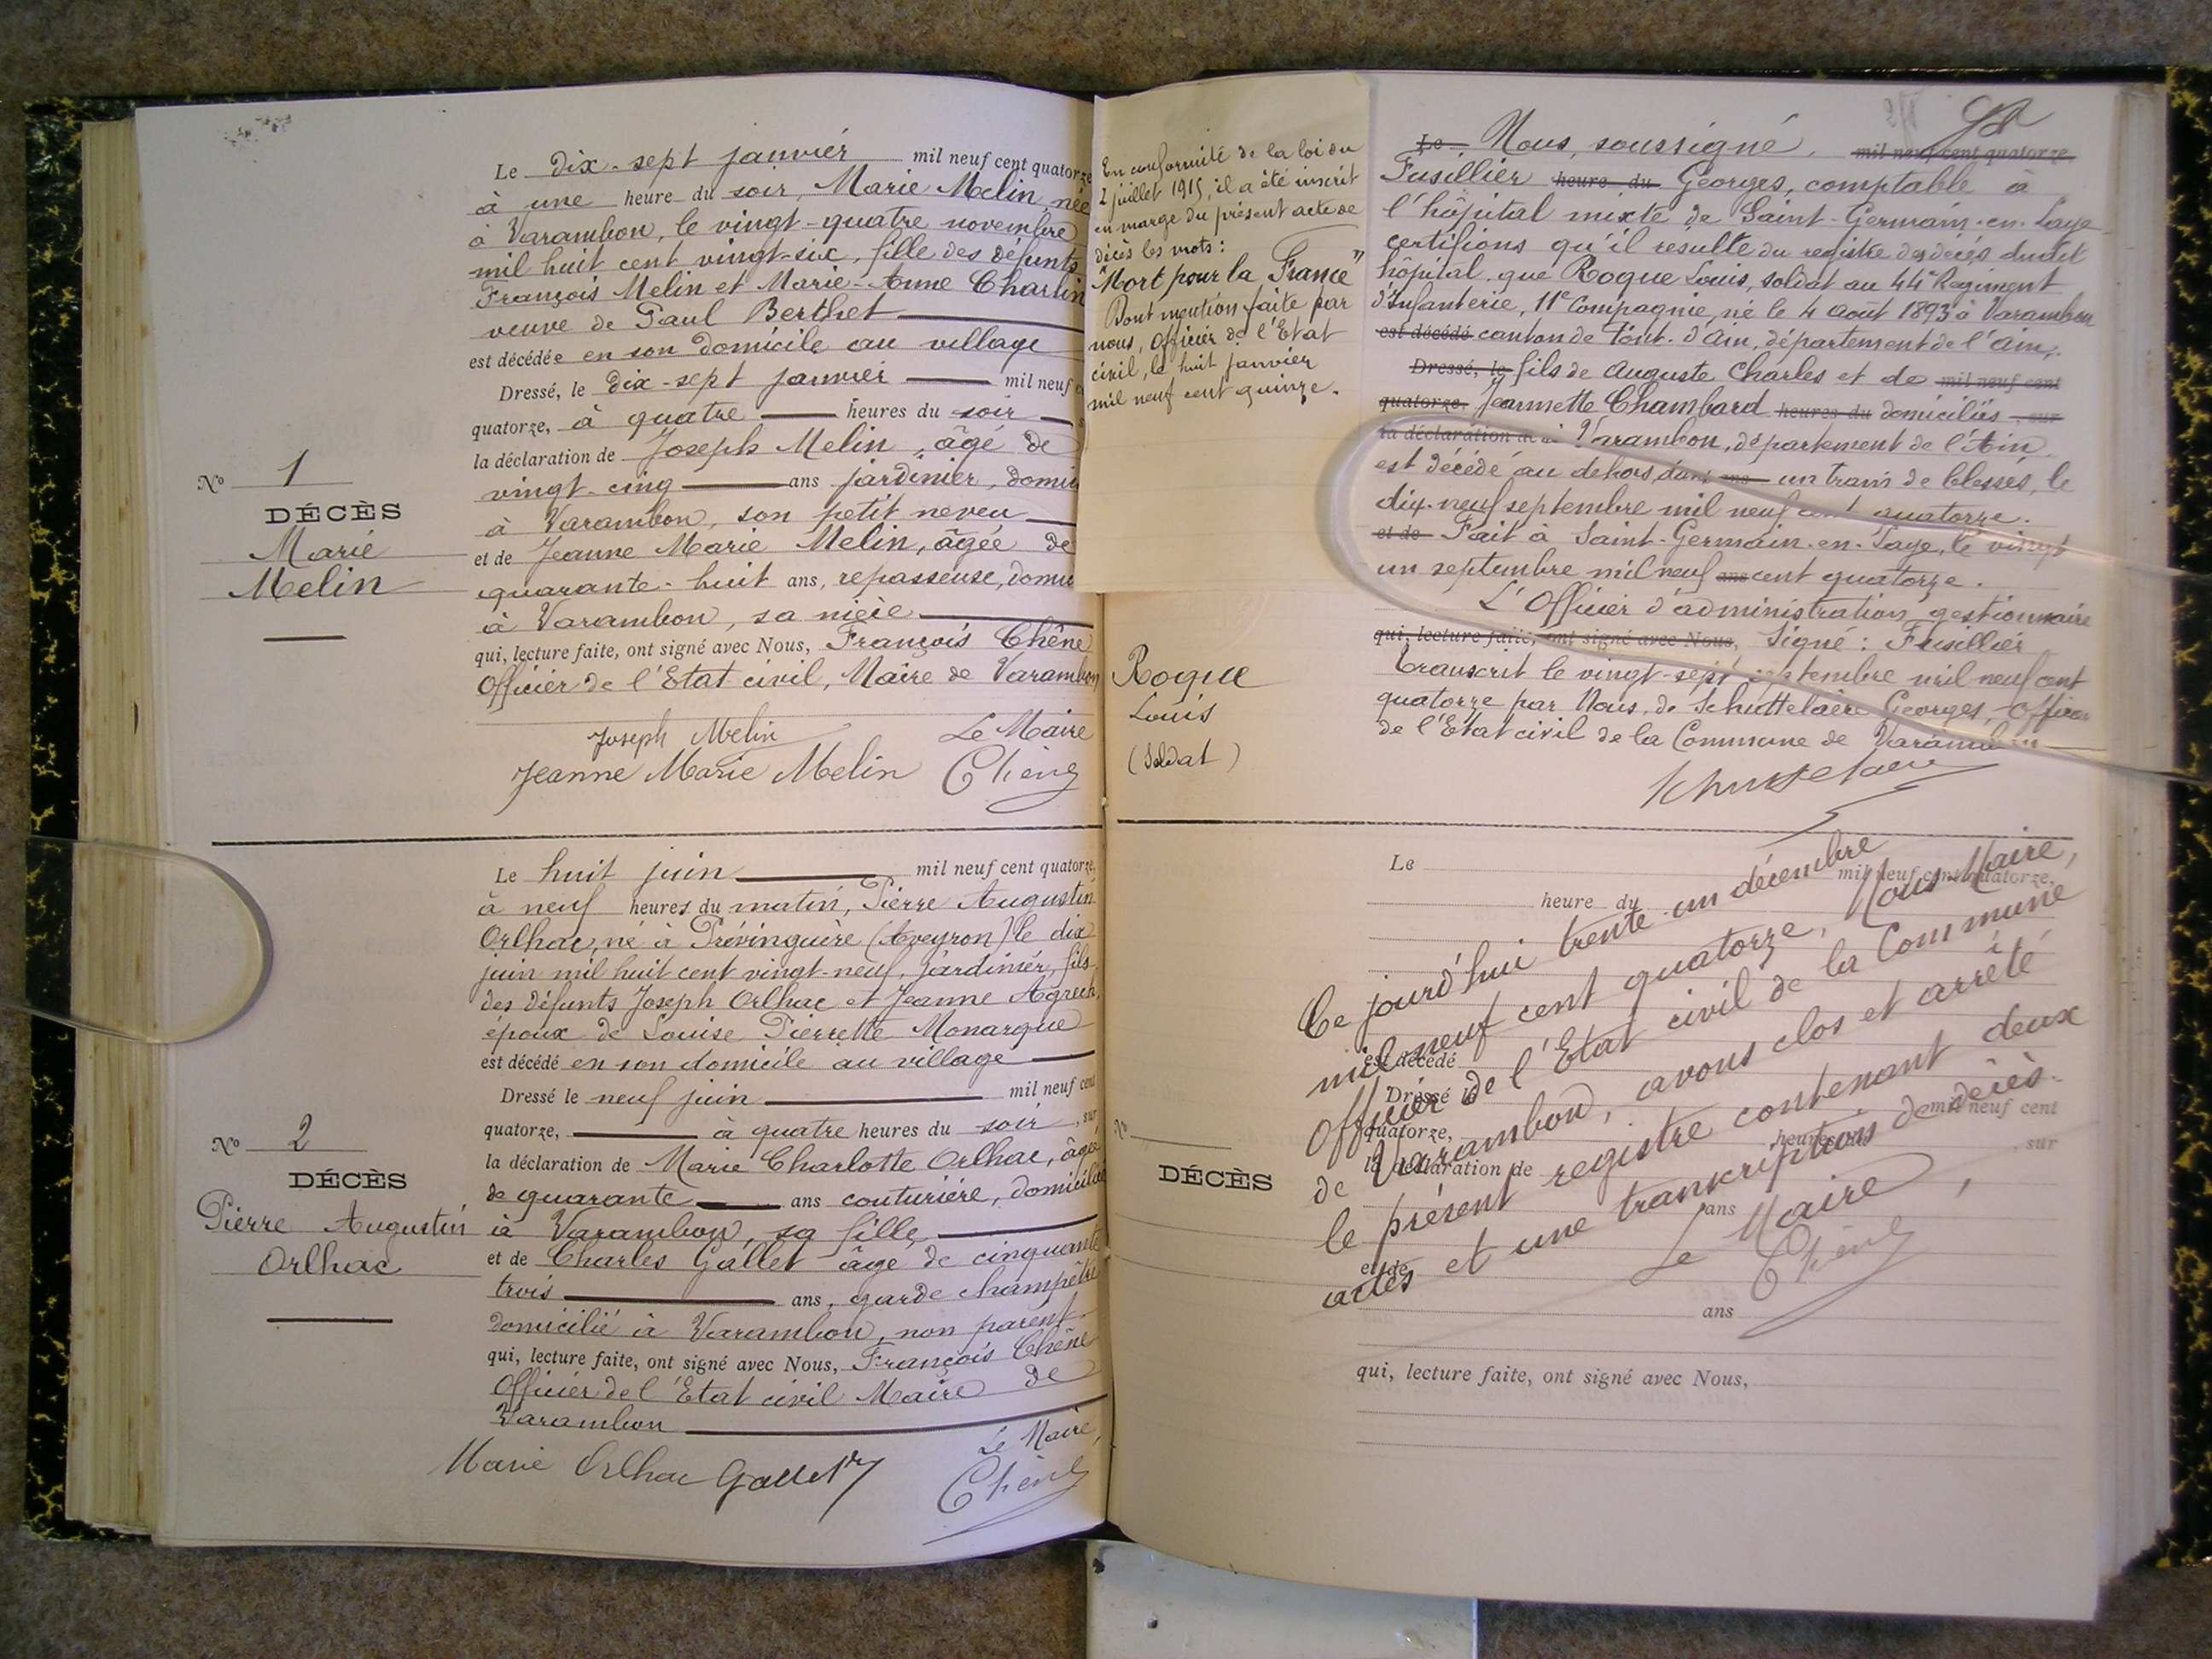 Le dix-sept janvier mil neuf cent quatorze
à une heure du soir, Marie Melin, née
à Varambon, le vingt-quatre novembre
mil huit cent vingt-six, fille des défunts
François Melin et Marie-Anne Charlin
veuve de Paul Berthet
est décédée en son domicile au village
Dressé, le dix-sept janvier mil neuf
quatorze, à quatre heures du soir
la déclaration de Joseph Melin, âgé de
vingt-cinq ans jardinier,
à Varambon, son petit neveu
et de Jeanne Marie Melin, âgée de
quarante-huit ans, repasseuse,
à Varambon, sa nièce
qui, lecture faite, ont signé avec Nous, François Chêne
Officier de l'Etat civil, Maire de Varambon
Joseph Melin Le Maire
Jeanne Marie Melin Chêne
No 1
DÉCÈS
Marie
Melin
Le huit juin mil neuf cent quatorze,
à neuf heures du matin, Pierre Augustin
Orlhac, né à Prévinquière (Aveyron) le dix
juin mil huit cent vingt-neuf, jardinier, fils
des défunts Joseph Orlhac et Jeanne
époux de Louise Pierrette Monarque
est décédé en son domicile au village
Dressé le neuf juin mil neuf cent
quatorze, à quatre heures du soir, sur
la déclaration de Marie Charlotte Orlhac, âgée
de quarante ans couturière, domiciliée
à Varambon, sa fille
et de Charles Gallet âgé de cinquante
trois ans, garde champêtre
domicilié à Varambon, non parent
qui, lecture faite, ont signé avec Nous, François Chêne
Officier de l'Etat civil Maire de
Varambon
Le Maire,
Marie Orlhac Gallet Chêne
No 2
DÉCÈS
Pierre Augustin
Orlhac
En conformité de la loi du
2 juillet 1915, il a été inscrit
en marge du présent acte de
décès les mots:
"Mort pour la France"
Dont mention faite par
nous, Officier de l'Etat
civil, le huit janvier
mil neuf cent quinze.
Roque
Louis
(Soldat)
Le Nous, soussigné, mil neuf cent quatorze,
Fusillier heure du Georges, comptable à
l'hôpital mixte de Saint-Germain-en-Laye
certifions qu'il resulte du registre des décés dudit
hôpital, que Roque Louis, soldat au 44e Régiment
d'Infanterie, 11e Compagnie, né le 4 août 1893 à Varambon
est décédé canton de Pont-d'Ain, département de l'Ain,
Dressé, le fils de Auguste Charles et de mil neuf cent
quatorze, Jeannette Chambard heures du domiciliés sur
la déclaration de à Varambon, département de l'Ain
est décédé au dehors, dans un train de blessés, le
dix-neuf septembre mil neuf cent quatorze.
et de Fait à Saint-Germain-en-Laye, le vingt
un septembre mil neuf ans cent quatorze.
L'Officier d'administration gestionnaire
qui, lecture faite, ont signé avec Nous, Signé: Fusillier
Transcrit le vingt-sept septembre mil neuf cent
quatorze par Nous, de Schuttelaère Georges, Officier
de l'Etat civil de la Commune de Varambon
Le mil neuf cent quatorze,
heure du
est décédé
Dressé le
quatorze, mil neuf cent
heures du sur
la déclaration de
ans
et de
ans
qui, lecture faite, ont signé avec Nous,
No
DÉCÈS
Ce jourd'hui trente-un décembre
mil neuf cent quatorze, Nous Maire,
Officier de l'Etat civil de la Commune
de Varambon, avons clos et arrêté
le présent registre contenant deux
actes et une transcription de décès.
Le Maire,
Chêne